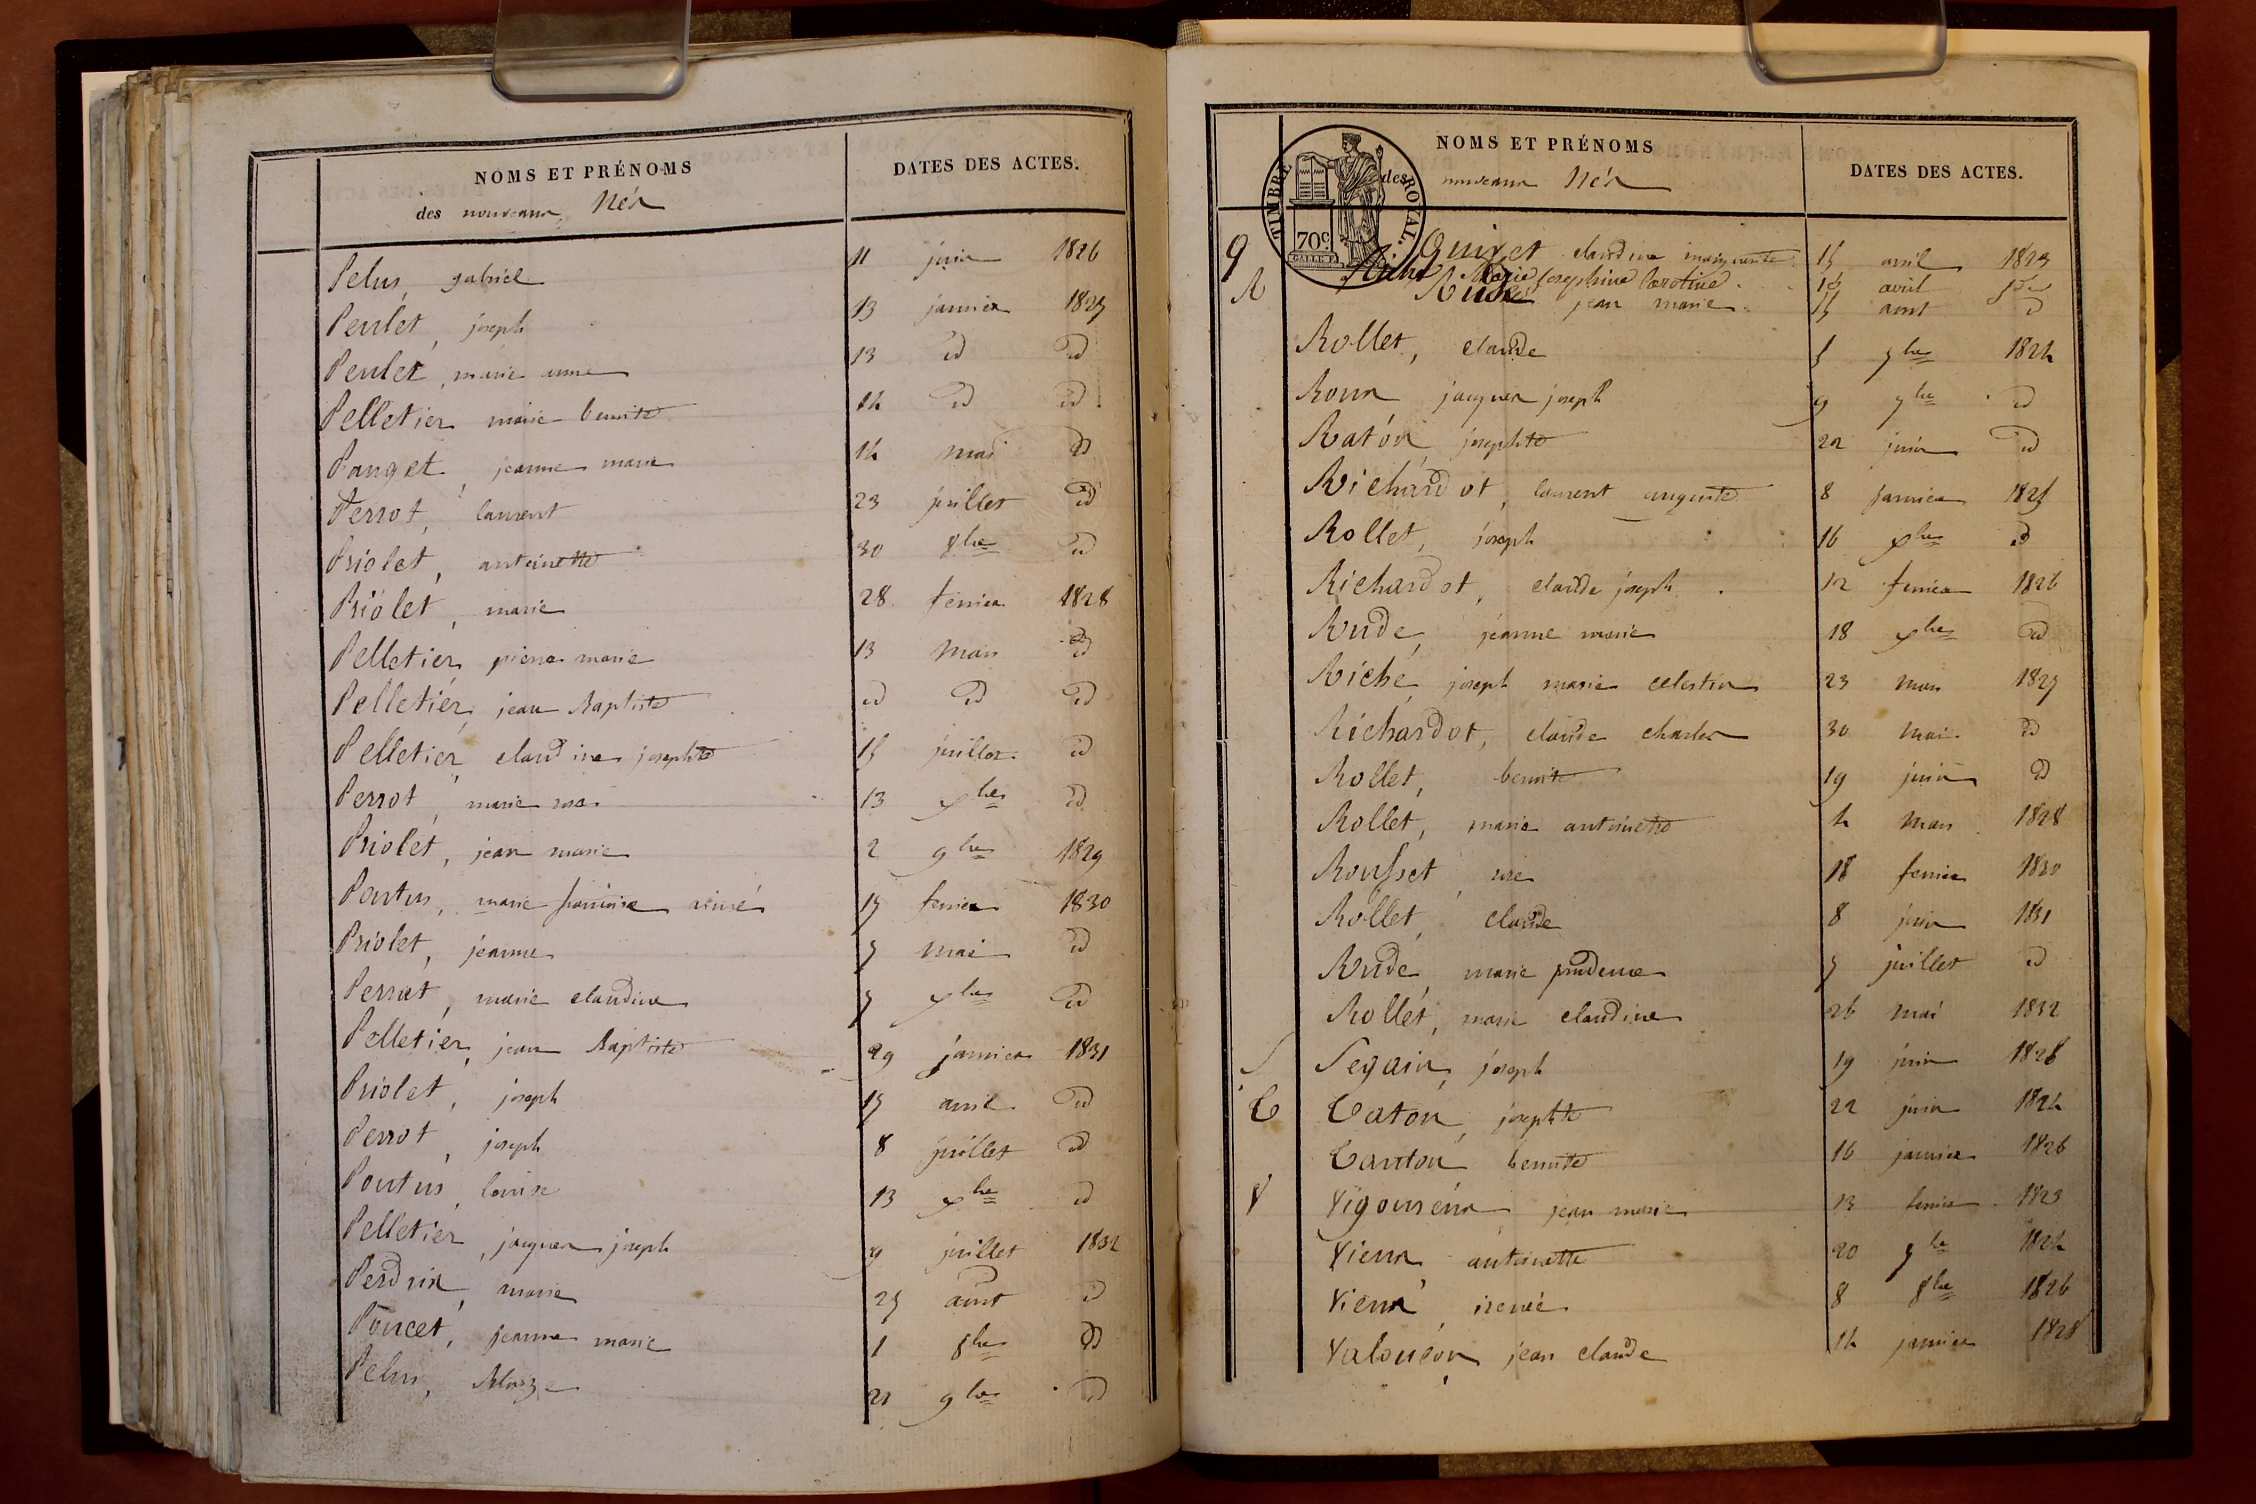 NOMS ET PRÉNOMS
DATES DES ACTES.
des nouveaux Nés
Pelus, gabriel 11 juin 1826
Penlet, joseph 13 janvier 1827
Penlet, marie anne 13 id id
Pelletier marie benoite 14 id id
Panget, jeanne marie 14 mai id
Perrot, laurent 23 juillet id
Priolet, antoinette 30 8bre id
Priolet, marie 28 fevrier 1828
Pelletier, pierre marie 13 mars id
Pelletier, jean Baptiste id id id
Pelletier, claudine josephte 15 juillet id
Perrot, marie rose 13 xbre id
Priolet, jean marie 2 9bre 1829
Pontus, marie aimé 17 fevrier 1830
Priolet, jeanne 7 mai id
Perrat, marie claudine 7 xbre id
Pelletier, jean Baptiste 29 janvier 1831
Priolet, joseph 17 avril id
Perrot, joseph 8 juillet id
Pontus, louise 13 xbre id
Pelletier, jacques joseph 9 juillet 1832
Perdrix, marie 27 aout id
Poncet, jeanne marie 1 8bre id
Pelus, 21 9bre id
NOMS ET PRÉNOMS
DATES DES ACTES.
des nouveaux Nés
TIMBRE ROYAL.
70c
Q Guivet claudine 15 avril 1823
R Marie josephine Caroline avril
Rude jean marie 15 aout id
Rollet, claude 5 7bre 1824
Roux jacques joseph 9 7bre id
Raton, josephte 22 juin id
Richardot, laurent auguste 8 janvier 1825
Rollet, joseph 16 xbre id
Richardot, claude joseph 12 fevrier 1826
Rude, jeanne marie 18 xbre id
Riche, joseph marie celestin 23 mars 1827
Richardot, claude charles 30 mai id
Rollet, benoite 19 juin id
Rollet, marie antoinette 4 mars 1828
Rousset, 18 fevrier 1830
Rollet, claude 8 juin 1831
Rude, marie prudence 7 juillet id
Rollet, marie claudine 26 mai 1832
S Segain, joseph 19 juin 1828
T Taton, josephte 22 juin 1824
Tanton, benoite 16 janvier 1826
V Vigoureux, jean marie 13 fevrier 1823
Vieux antoinette 20 7bre 1824
Vieux, irenée 8 8bre 1826
jean claude 14 janvier 1828